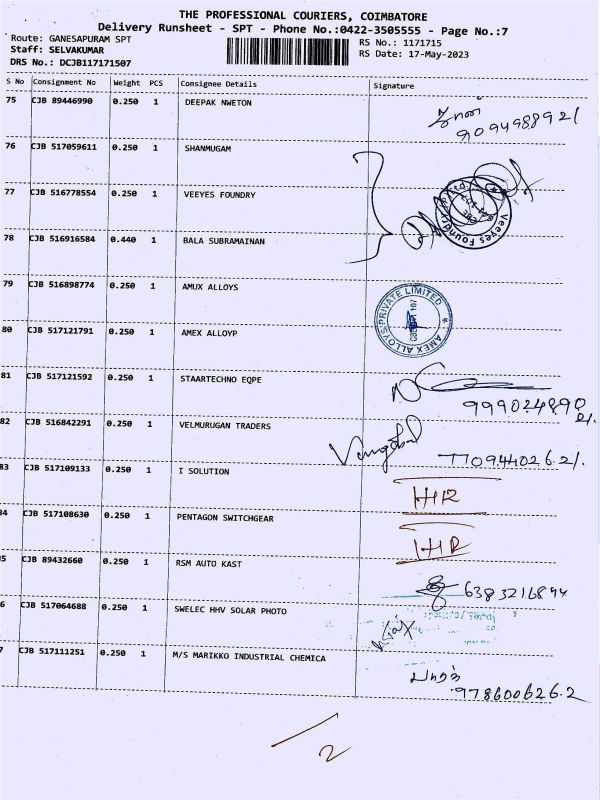 THE PROFESSIONAL COURIERS, COIMBATORE
Delivery Runsheet - SPT - Phone No.:0422-3505555 - Page No.:7
Route: GANESAPURAM SPT
RS No.: 1171715
Staff: SELVAKUMAR
RS Date: 17-May-2023
DRS No.: DCJB117171507
S No Consignment No Weight PCS Consignee Details Signature
75 CJB 89446990 0.250 1 DEEPAK NWETON
9094988921
76 CJB 517059611 0.250 1 SHANMUGAM
77 CJB 516778554 0.250 1 VEEYES FOUNDRY
Veeyes Foundry
78 CJB 516916584 0.440 1 BALA SUBRAMAINAN
79 CJB 516898774 0.250 1 AMUX ALLOYS
AMEX ALLOYS PRIVATE LIMITED
80 CJB 517121791 0.250 1 AMEX ALLOYP
81 CJB 517121592 0.250 1 STAARTECHNO EQPE
999024890
21.
82 CJB 516842291 0.250 1 VELMURUGAN TRADERS
770944026.21.
83 CJB 517109133 0.250 1 I SOLUTION
HR
84 CJB 517108630 0.250 1 PENTAGON SWITCHGEAR
HR
5 CJB 89432660 0.250 1 RSM AUTO KAST
6383216894
6 CJB 517064688 0.250 1 SWELEC HHV SOLAR PHOTO
7 CJB 517111251 0.250 1 M/S MARIKKO INDUSTRIAL CHEMICA
978600626.2
2